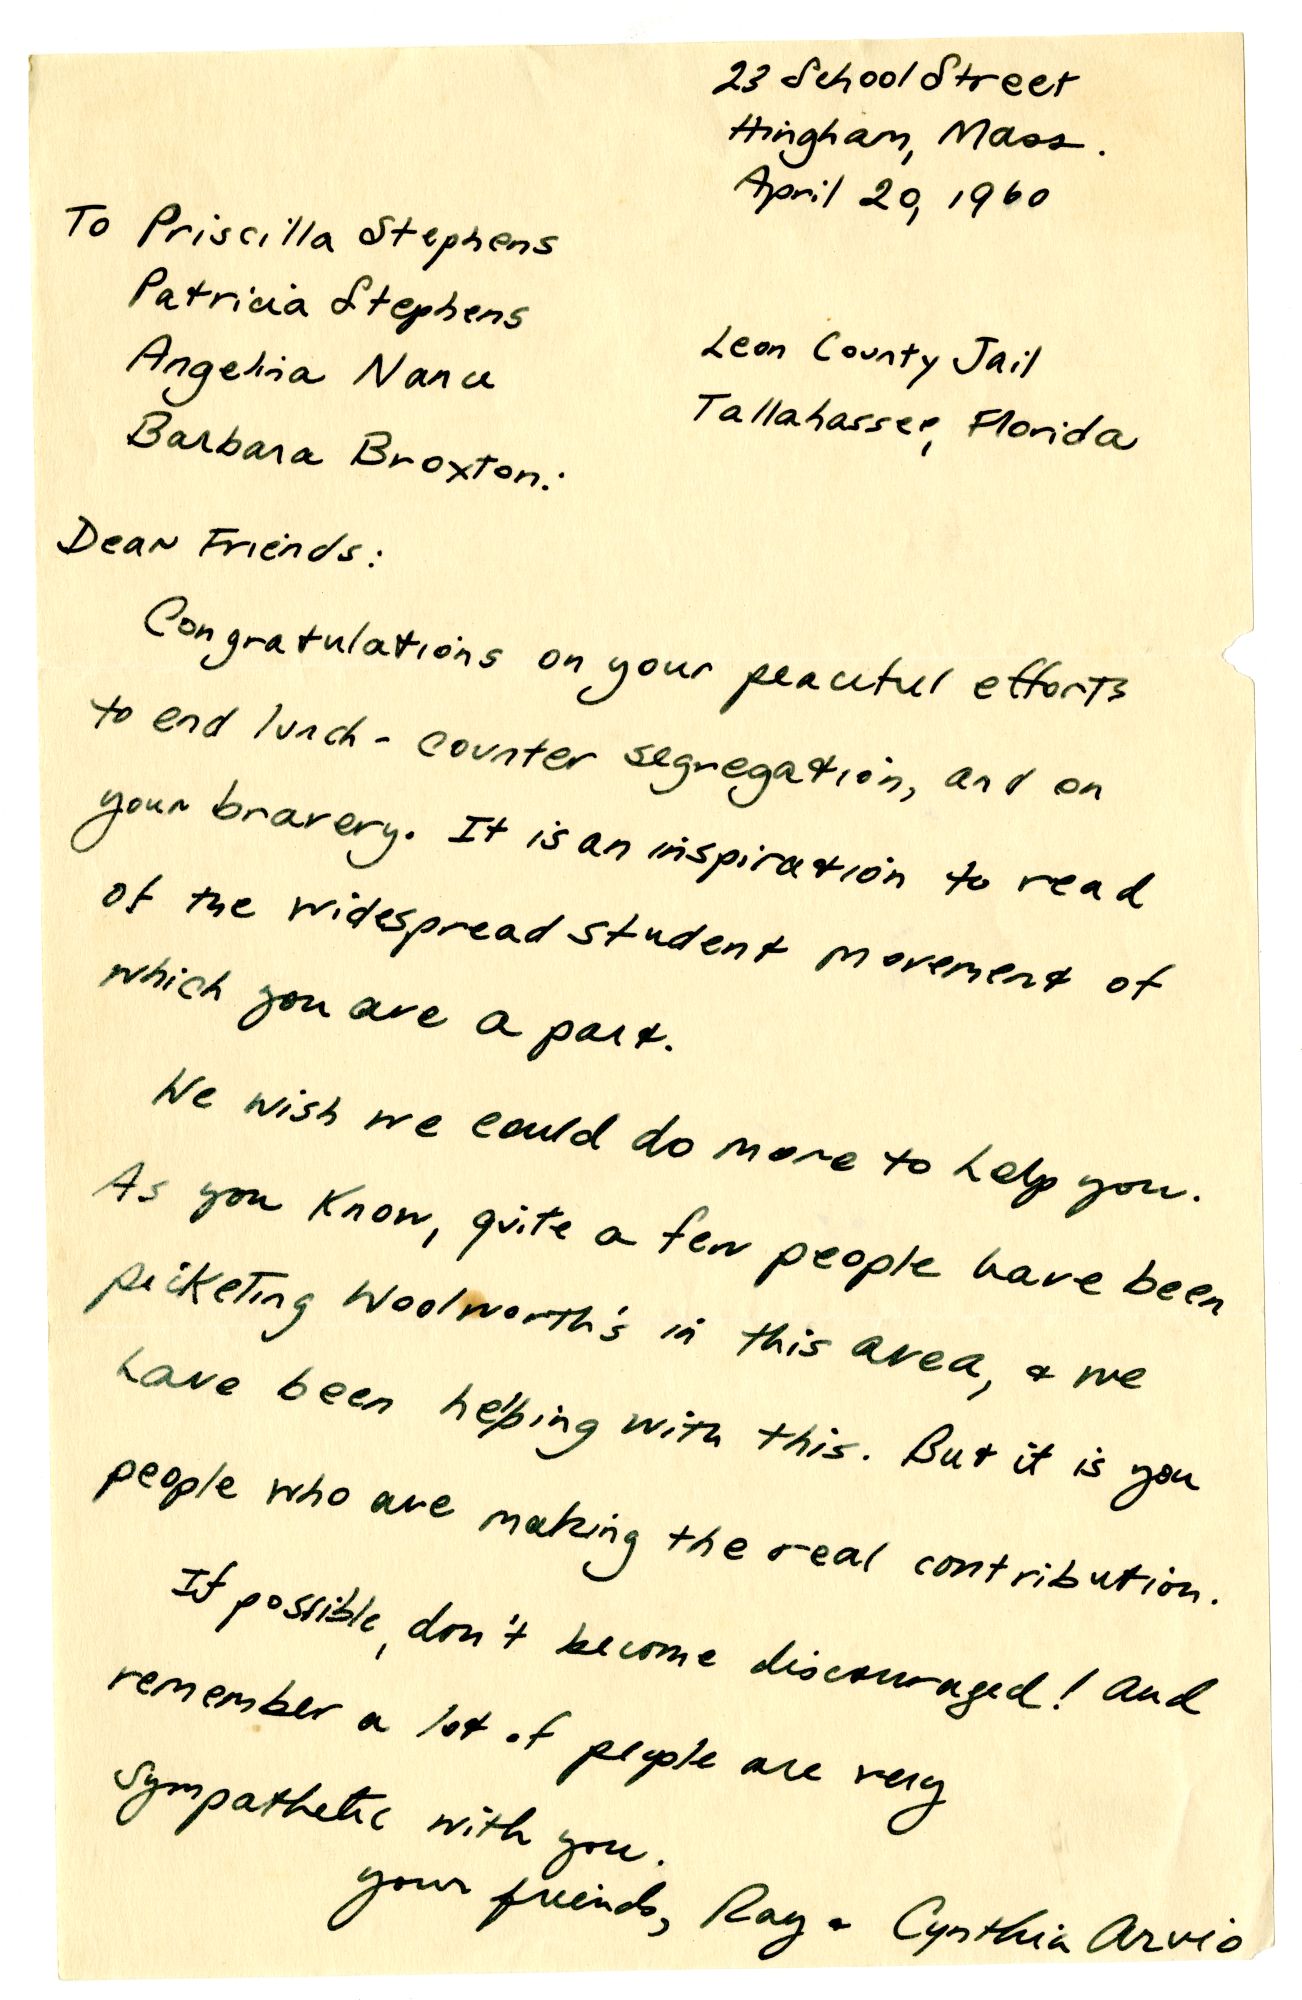 23 School Street
Hingham, Mass.
April 20, 1960
To Priscilla Stephens
Patricia Stephens
Angelina Nance
Barbara Broxton:
Leon County Jail
Tallahassee, Florida
Dear Friends:
Congratulations on your peaceful efforts
to end lunch-counter segregation, and on
your bravery. It is an inspiration to read
of the widespread student movement of
which you are a part.
We wish we could do more to help you.
As you know, quite a few people have been
picketing Woolworth's in this area, & we
have been helping with this. But it is you
people who are making the real contribution.
If possible, don't become discouraged! And
remember a lot of people are very
sympathetic with you.
your friends, Ray & Cynthia Arvio